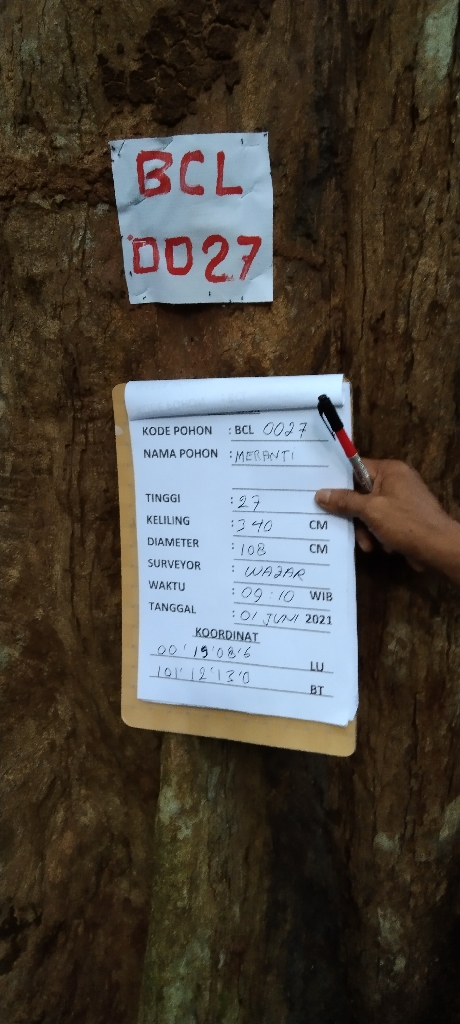 BCL
0027
KODE POHON : BCL 0027
NAMA POHON : MERANTI
TINGGI : 27
KELILING : 340 CM
DIAMETER : 108 CM
SURVEYOR : WAZAR
WAKTU : 09:10 WIB
TANGGAL : 01 JUNI 2021
KOORDINAT
00'19'08'6 LU
101'12'13'0 BT